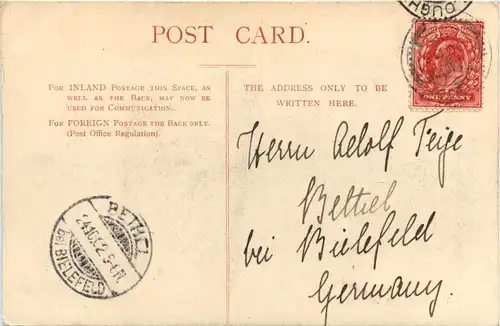 POST CARD.
FOR INLAND POSTAGE THIS SPACE, AS
WELL AS THE BACK, MAY NOW BE
USED FOR COMMUNICATION.
FOR FOREIGN POSTAGE THE BACK ONLY.
(Post Office Regulation).
THE ADDRESS ONLY TO BE
WRITTEN HERE.
ONE PENNY
Herrn Adolf Teige
Bethel
bei Bielefeld
Germany.
BETHEL
bei BIELEFELD